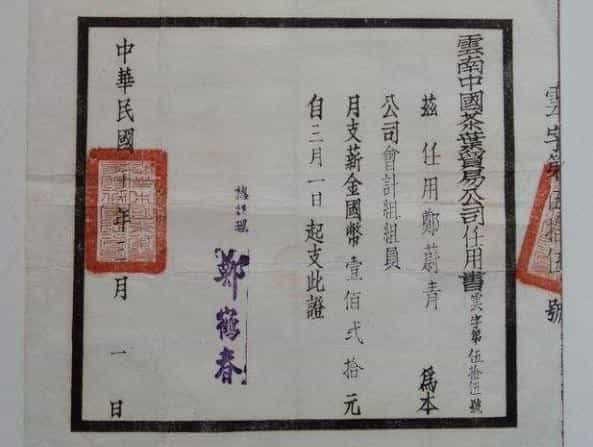 雲字第伍拾伍號
雲南中國茶葉貿易公司任用書雲字第伍拾伍號
茲任用鄭蔚青 爲本
公司會計組組員
月支薪金國幣壹佰弍拾元
自三月一日起支此證
總經理 鄭鶴春
中華民國十年月一日